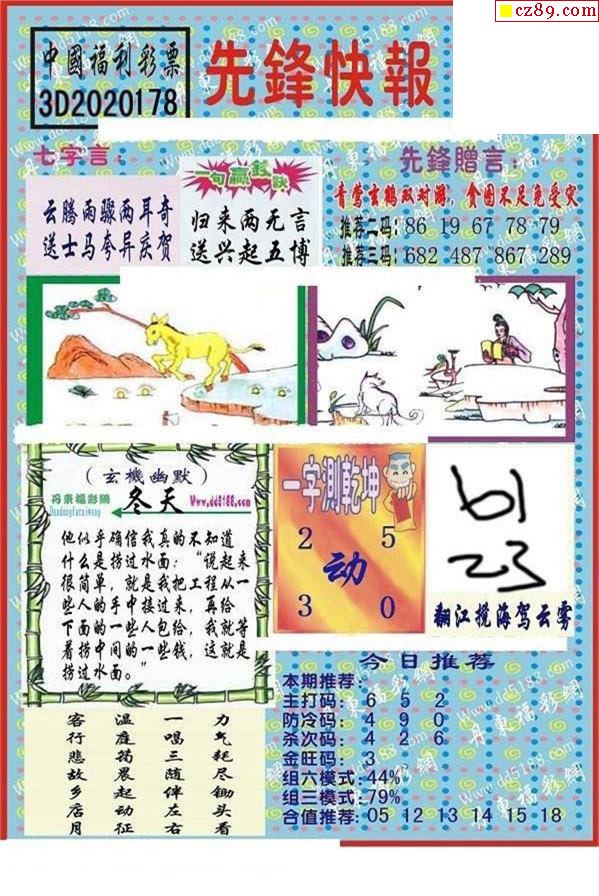 cz89.com
中國福利彩票
3D2020178
先鋒快報
七字言：
云腾雨骤两耳奇
送士马夸异庆贺
一句贏錢訣
归来两无言
送兴起五博
先鋒贈言：
青莺玄鹤双对游，食图不足免受灾
推荐二码：86 19 67 78 79
推荐三码：682 487 867 289
（玄機幽默）
丹東福彩網
冬天
Www.dd5188.com
他似乎确信我真的不知道
什么是捞过水面：“说起来
很简单，就是我把工程从一
些人的手中接过来，再给
下面的一些人包给，我就等
着捞中间的一些钱，这就是
捞过水面。”
一字测乾坤
2 5
动
3 0
61
23
翻江搅海驾云雾
今日推荐
本期推荐：
主打码：6 5 2
防冷码：4 9 0
杀次码：4 2 6
金旺码：3
组六模式：44%
组三模式：79%
合值推荐：05 12 13 14 15 18
客行悲故乡店月
温庭筠晨起动征
一唱三随伴左右
力气耗尽锄头看